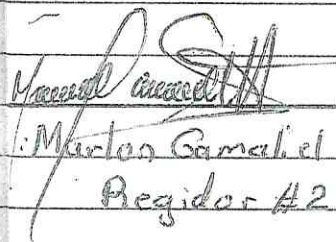 Marlon Gamaliel
Regidor #2